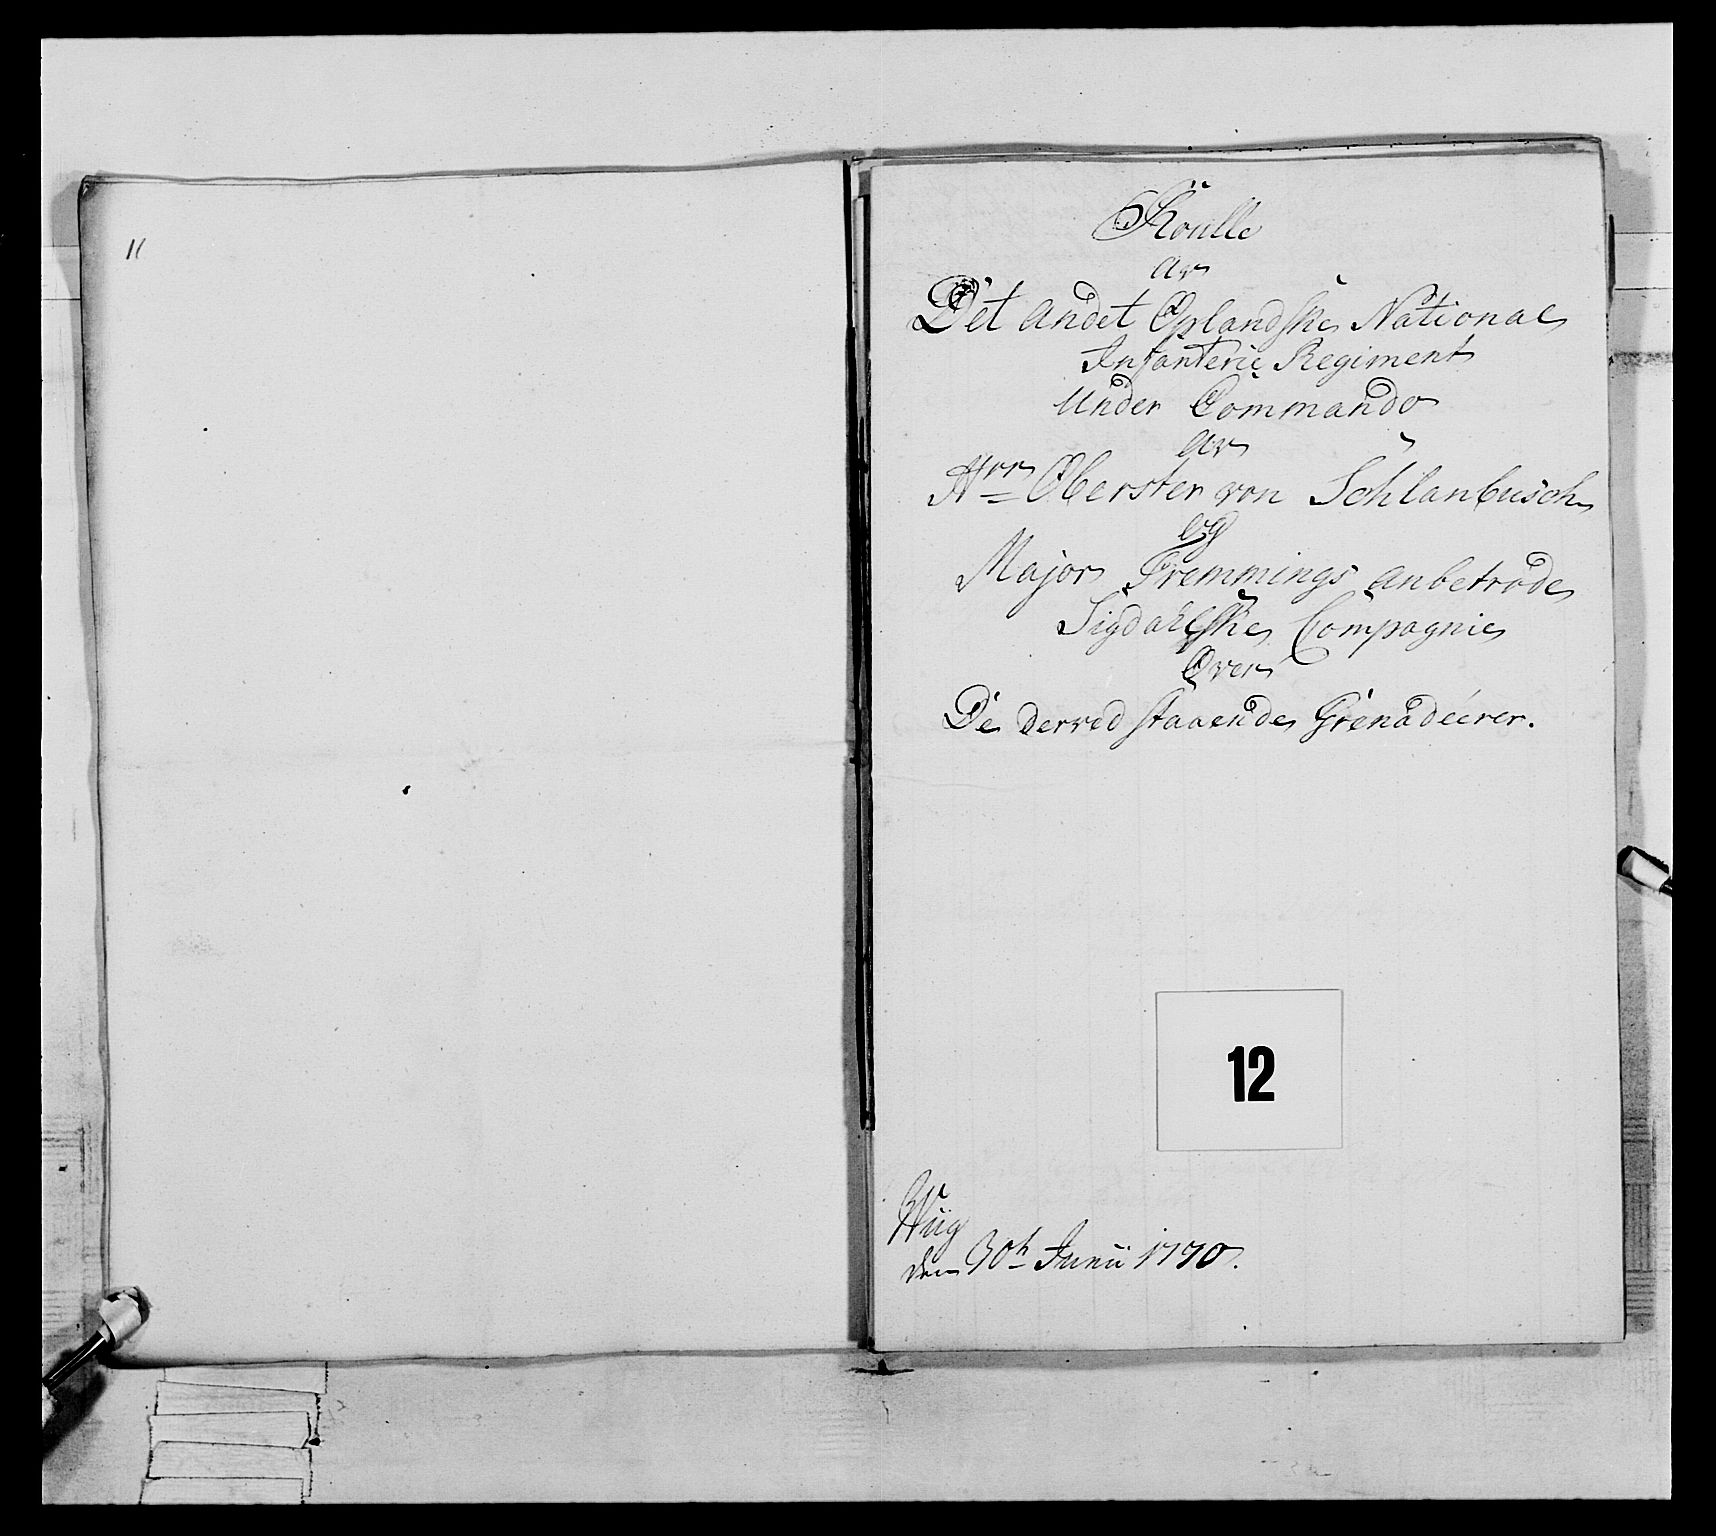 11
Roulle
av
Det andet Oplandske National
Infanterie Regiment
Under Commando
av
Hrr Oberster von Schlanbusch
og
Major Fremmings anbetrode
Sigdahlske Compagnie
Over
De derved staaende Grenadeerer.
12
Wiig
den 30t Junii 1770.